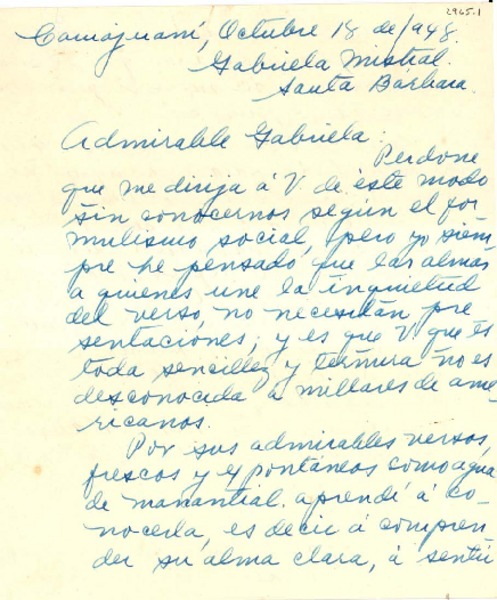 2965.1
Camajuaní, Octubre 18 de/948.
Gabriela Mistral.
Santa Bárbara.
Admirable Gabriela:
Perdone
que me dirija á V. de éste modo
sin conocernos según el for
mulismo social, pero yo siem
pre he pensado que las almas
a quienes une la inquietud
del verso, no necesitan pre
sentaciones, y es que V. que és
toda sencillez y ternura no es
desconocida á millares de ame
ricanos.
Por sus admirables versos,
frescos y espontáneos como agua
de manantial aprendí á co-
nocerla, es decir á compren
der su alma clara, á sentir